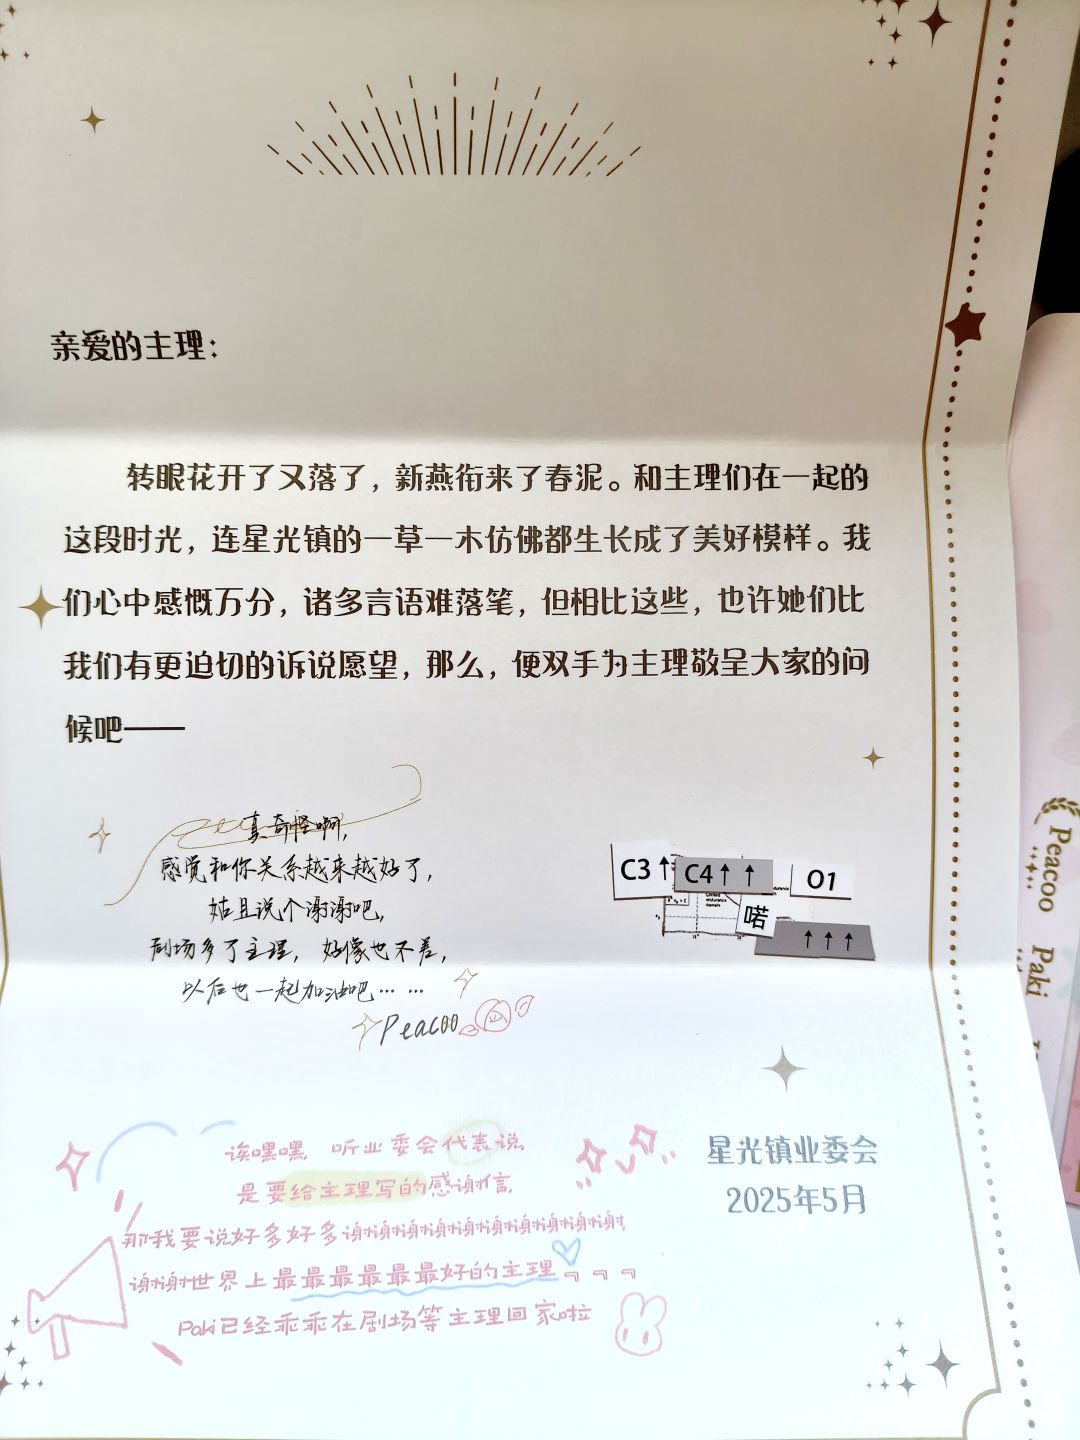 亲爱的主理：
转眼花开了又落了，新燕衔来了春泥。和主理们在一起的
这段时光，连星光镇的一草一木仿佛都生长成了美好模样。我
们心中感慨万分，诸多言语难落笔，但相比这些，也许她们比
我们有更迫切的诉说愿望，那么，便双手为主理敬呈大家的问
候吧——
真奇怪啊，
感觉和你关系越来越好了，
姑且说个谢谢吧，
剧场多了主理，好像也不差，
以后也一起加油吧……
Peacoo
C3↑
C4↑ ↑
O1
喏
↑ ↑ ↑
诶嘿嘿，听业委会代表说，
是要给主理写的感谢信，
那我要说好多好多谢谢谢谢谢谢谢谢谢谢谢谢，
谢谢世界上最最最最最最好的主理
Paki已经乖乖在剧场等主理回家啦
星光镇业委会
2025年5月
Peacoo
Paki